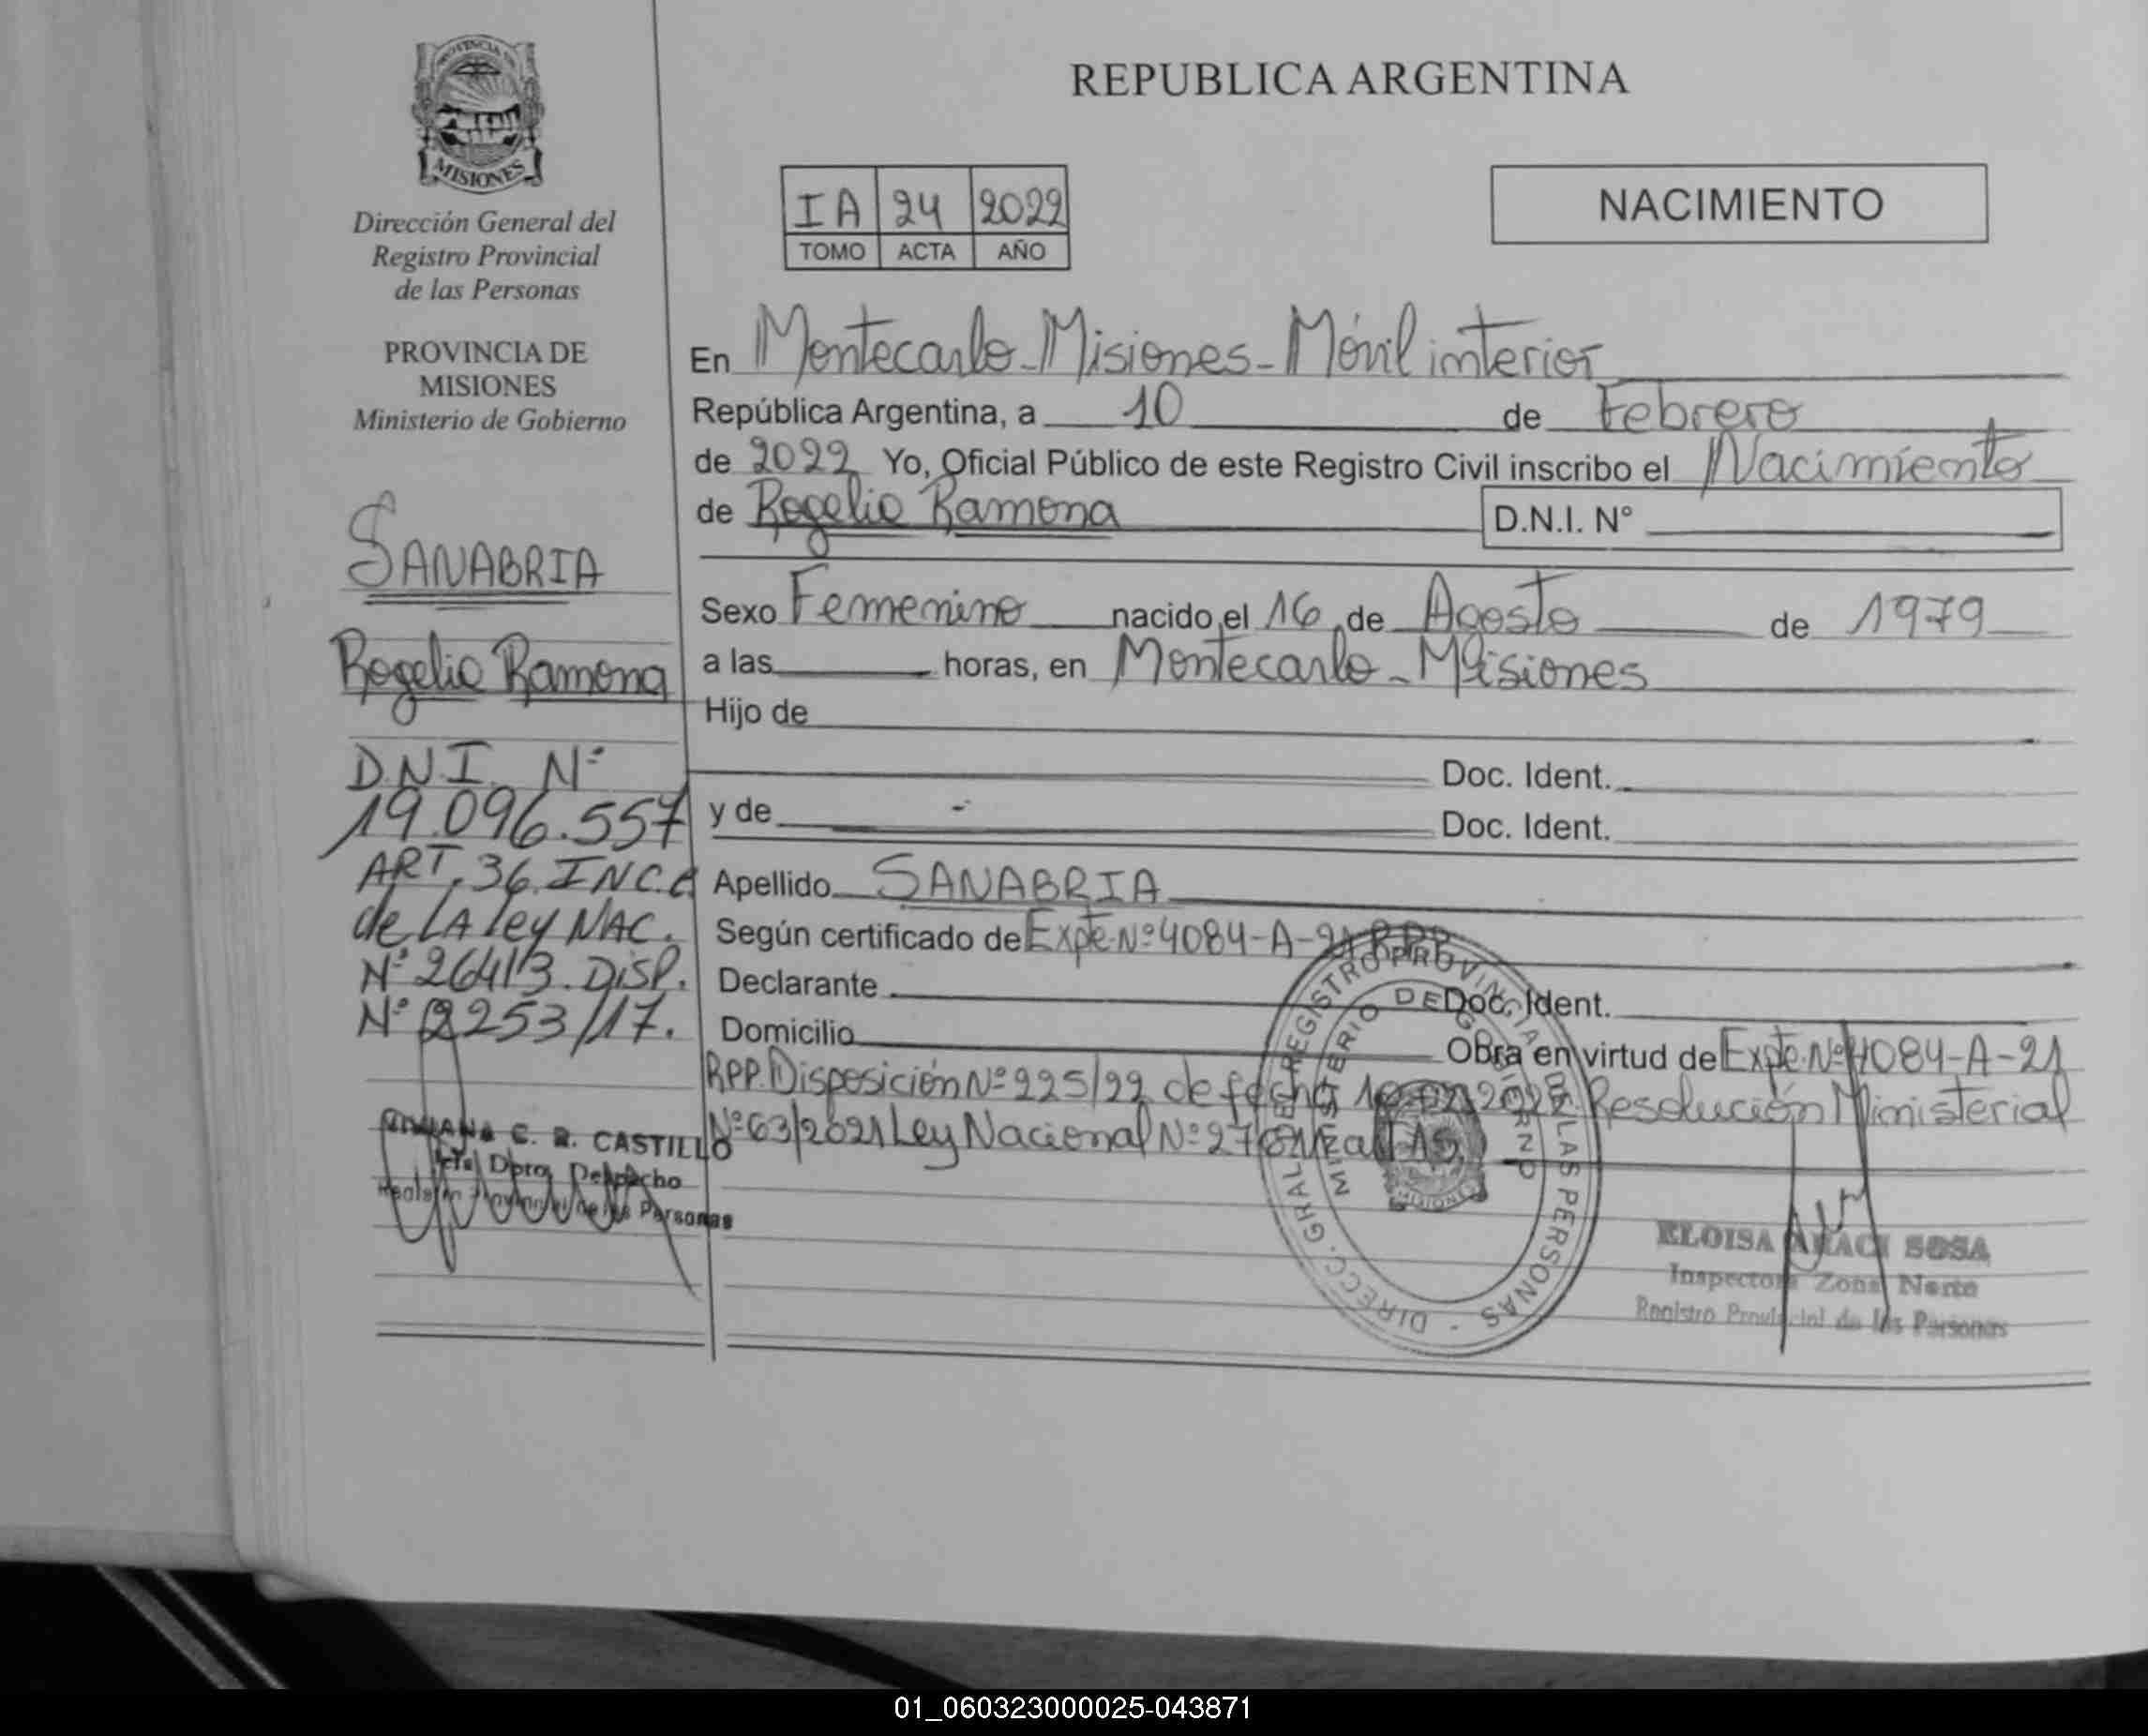 PROVINCIA DE
MISIONES
Dirección General del
Registro Provincial
de las Personas
PROVINCIA DE
MISIONES
Ministerio de Gobierno
SANABRIA
Rogelia Ramona
D.N.I. Nº
19.096.557
ART. 36. INC. C
de LA Ley NAC.
Nº 26413. DISP.
Nº 2253/17.
C. R. CASTILLO
Dpto. Despacho
Personas
REPUBLICA ARGENTINA
NACIMIENTO
IA 24 2022
TOMO ACTA AÑO
En Montecarlo - Misiones - Móvil interior
República Argentina, a 10 de Febrero
de 2022 Yo, Oficial Público de este Registro Civil inscribo el Nacimiento
de Rogelia Ramona D.N.I. Nº
Sexo Femenino nacido el 16 de Agosto de 1979
a las horas, en Montecarlo - Misiones
Hijo de
Doc. Ident.
y de Doc. Ident.
Apellido SANABRIA
Según certificado de Expte. Nº 4084-A-21 RPP
Declarante Doc. Ident.
Domicilio Obra en virtud de Expte. Nº 4084-A-21
RPP. Disposición Nº 225/22 de fecha 2022 Resolución Ministerial
Nº 63/2021 Ley Nacional Nº
DIRECC. GRAL. DEL REGISTRO PROVINCIAL DE LAS PERSONAS
MINISTERIO DE GOBIERNO
ELOISA ARACI SOSA
Inspectora Zona Norte
Registro Provincial de las Personas
01_060323000025-043871